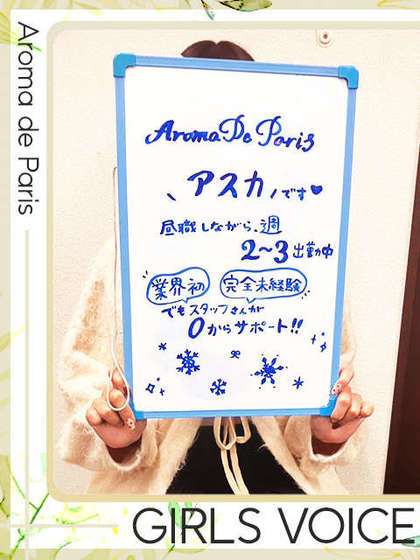 Aroma de Paris
Aroma De Paris
、アスカノです♥
昼職しながら、週
2~3出勤中
業界初 完全未経験
でもスタッフさんが
0からサポート!!
GIRLS VOICE